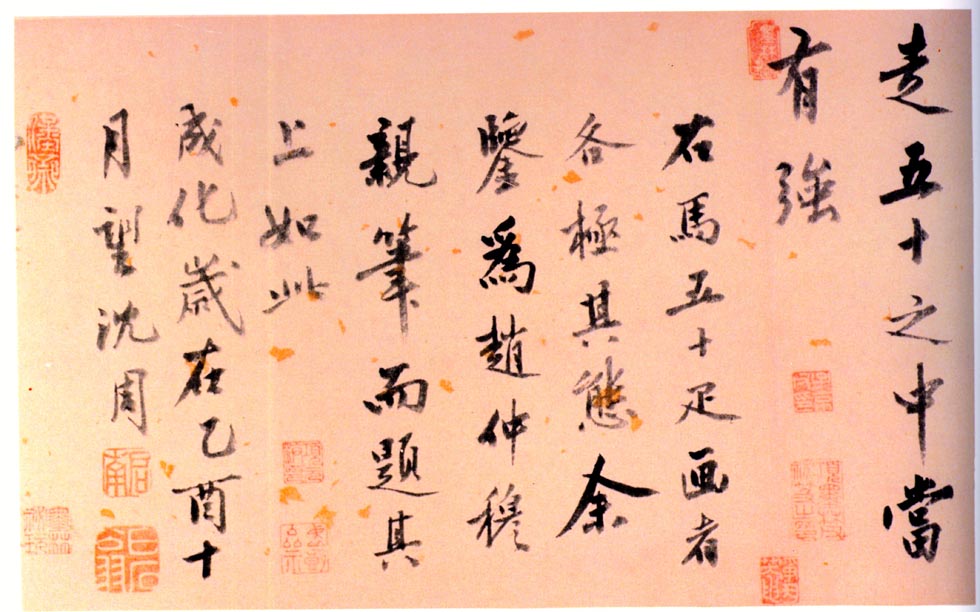 走五十之中當
有強
右馬五十足画者
各極其態余
鑒爲趙仲穆
親筆而題其
上如此
成化歲在乙酉十
月望沈周